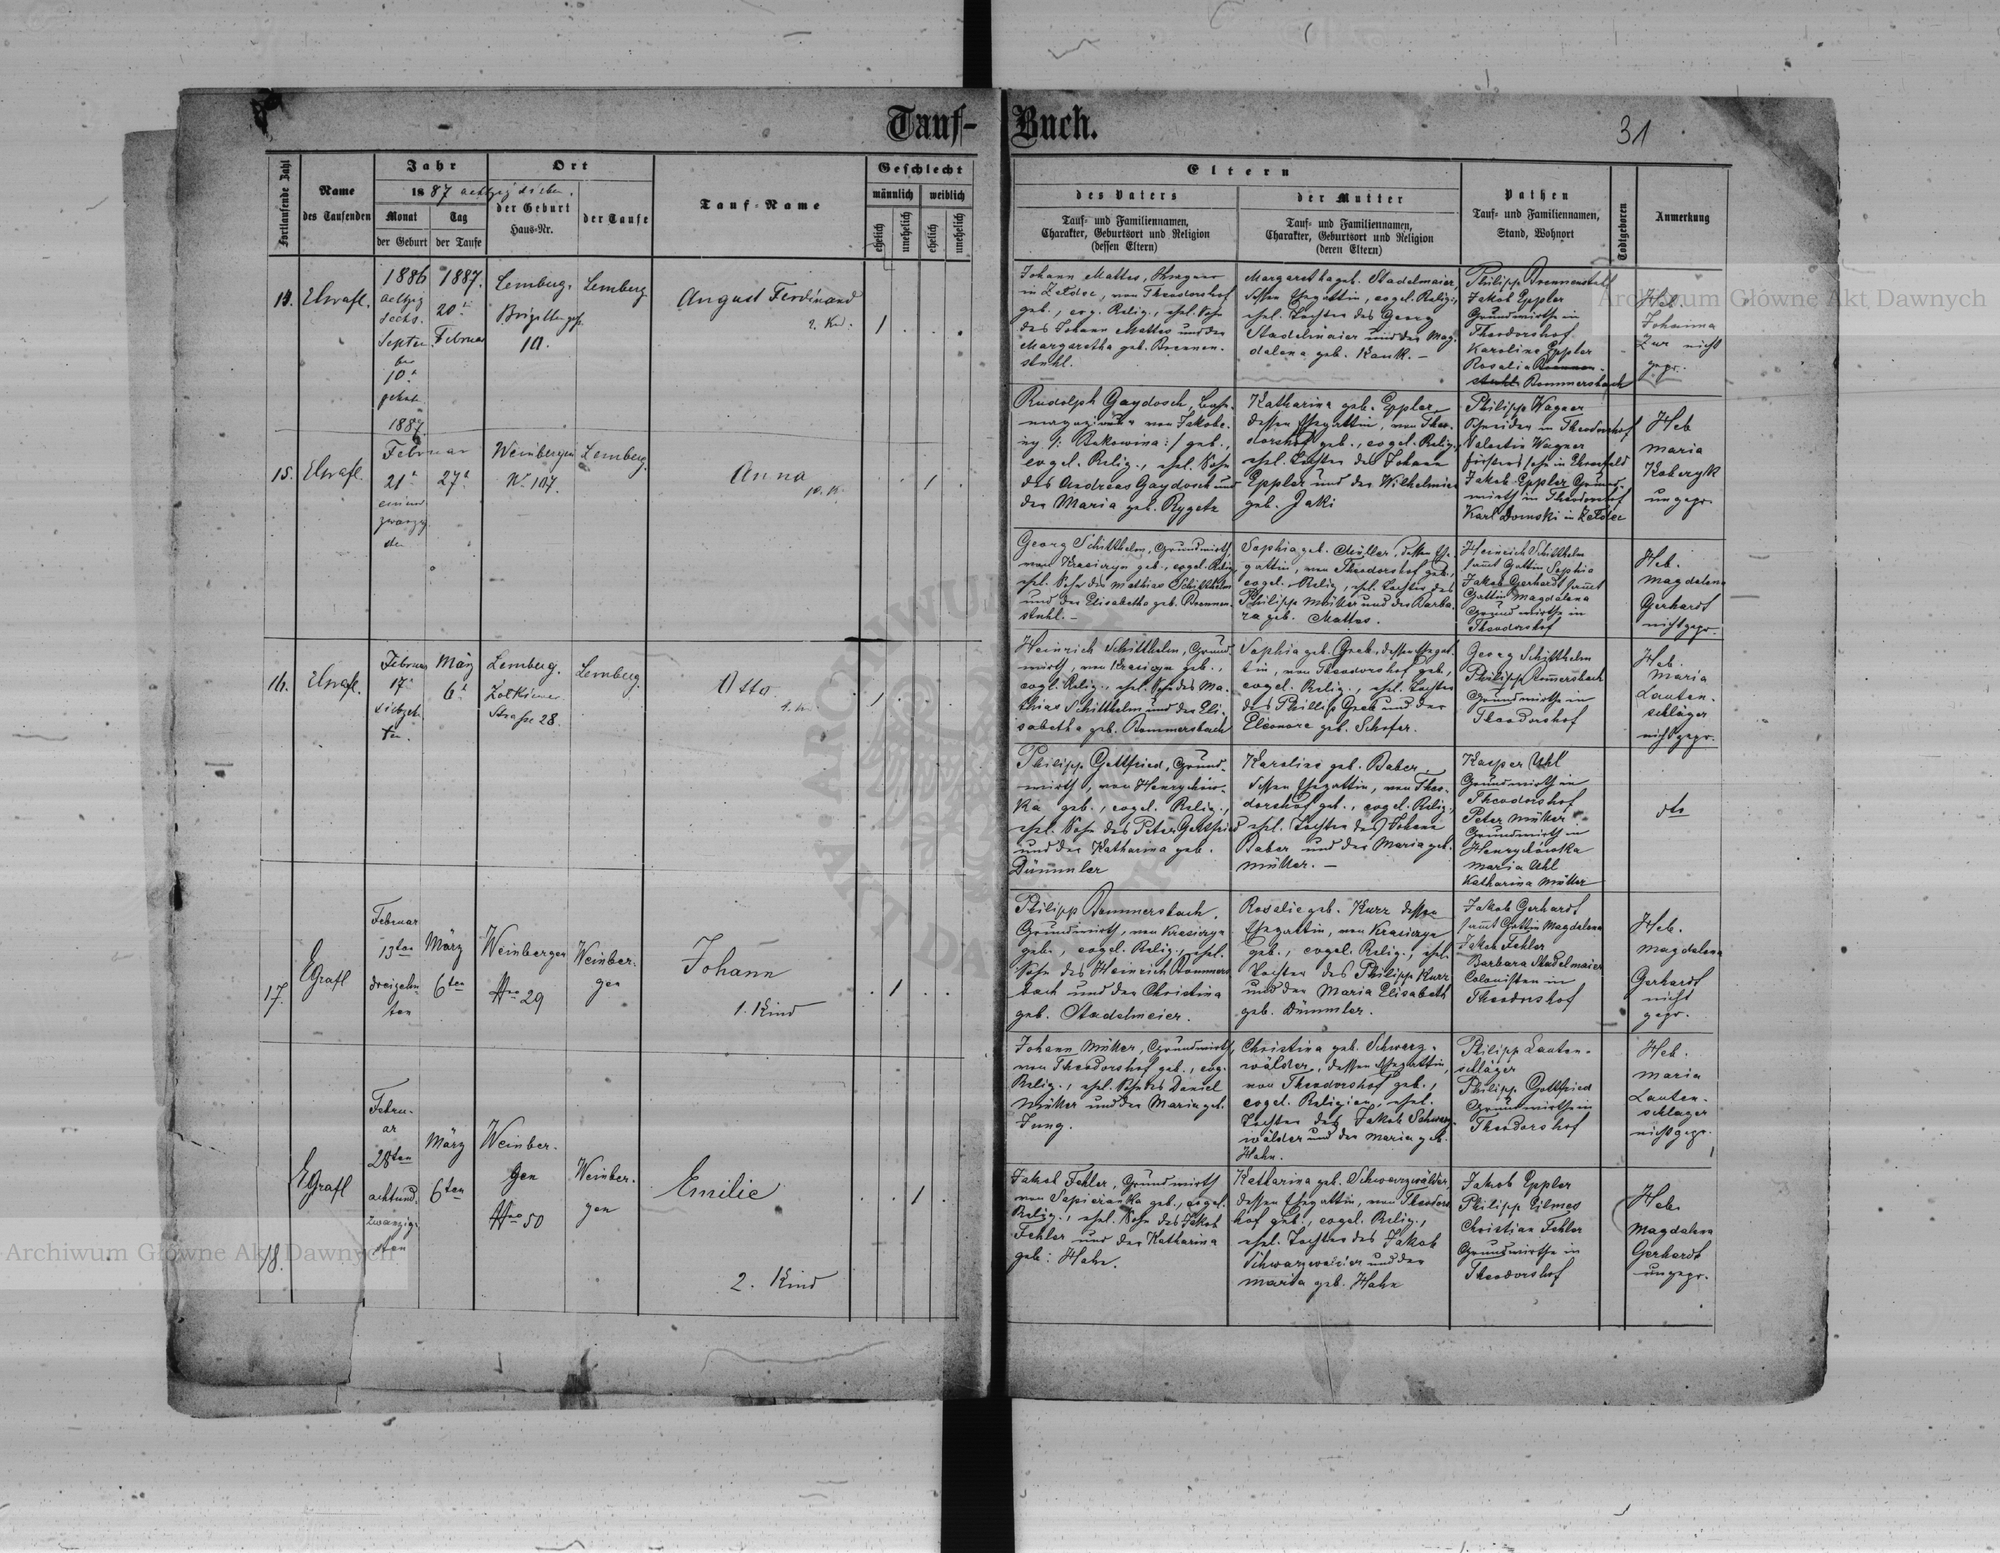 Tauf-
Fortlaufende Zahl
Name
des Taufenden
Jahr
1887
Monat
Tag
der Geburt
der Taufe
Ort
der Geburt
Haus-Nr.
der Taufe
Tauf-Name
Geschlecht
männlich
weiblich
ehelich
unehelich
ehelich
unehelich
14.
1886
Septem
ber
10t
1887.
20t
Februar
Lemberg.
19.
Lemberg
August Ferdinand
1
15.
1887
Februar
21t
27t
Weinbergen
Nr 107.
Lemberg.
Anna
1
16.
Februar
17t
März
6t
Lemberg.
Zołkiewer
Straße 28.
Lemberg.
Otto.
1
17.
Egrafl
Februar
13ten
dreizehn-
ten
März
6ten
Weinbergen
Nro 29
Weinber-
gen
Johann
1. Kind
1
18.
Egrafl
Febru-
ar
28ten
achtund
zwanzig-
sten
März
6ten
Weinber-
gen
Nro 50
Weinber-
gen
Emilie
2. Kind
1
Buch.
31
Eltern
des Vaters
Tauf- und Familiennamen,
Charakter, Geburtsort und Religion
(dessen Eltern)
der Mutter
Tauf- und Familiennamen,
Charakter, Geburtsort und Religion
(deren Eltern)
Pathen
Tauf- und Familiennamen,
Stand, Wohnort
Todtgeboren
Anmerkung
Johann Mattes,
von Theodorshof
geb., evg. Relig., ehel. Sohn
des Johann Mattes und der
Margaretha geb. Brennen-
stuhl.
Margaretha geb. Stadelmaier,
dessen Ehegattin, evgel. Relig.,
ehel. Tochter des Georg
Stadelmaier und der Mag-
dalena geb. Kauk. –
Philipp Brennenstuhl
Jakob Eppler
Grundwirthe in
Theodorshof
Karoline Eppler
Rosalia Brennen-
stuhl Bommersbach
Heb.
Johanna
Zur nicht
gepr.
Rudolph Gaydosch,
von Jakobe-
ny /: Bukowina :/ geb.,
evgel. Relig., ehel. Sohn
des Andreas Gaydosch und
der Maria geb. Rygetz
Katharina geb. Eppler,
dessen Ehegattin, von Theo-
dorshof geb., evgel. Relig.,
ehel. Tochter des Johann
Eppler und der Wilhelmine
geb. Jaki
Philipp Wagner
Schneider in Theodorshof
Valentin Wagner
Jakob Eppler Grund-
wirth in Theodorshof
Karl Domski in
Heb
Maria
Koberzyk
ungepr.
Georg Schitthelm, Grundwirth,
von Krasiczyn geb., evgel. Relig.,
ehel. Sohn des Mathias Schitthelm
und der Elisabetha geb. Brennen-
stuhl. –
Sophia geb. Müller, dessen Ehe-
gattin, von Theodorshof geb.,
evgel. Relig., ehel. Tochter des
Philipp Müller und der Barba-
ra geb. Mattes.
Heinrich Schitthelm
samt Gattin Sophia
Jakob Gerhardt samt
Gattin Magdalena
Grundwirthe in
Theodorshof
Heb.
Magdalena
Gerhardt
nicht gepr.
Heinrich Schitthelm, Grund-
wirth, von Krasiczyn geb.,
evgl. Relig., ehel. Sohn des Ma-
thias Schitthelm und der Eli-
sabetha geb. Bommersbach
Sophia geb. Greb, dessen Ehegat-
tin, von Theodorshof geb.,
evgel. Relig., ehel. Tochter
des Phillip Greb und der
Eleonore geb. Schäfer.
Georg Schitthelm
Philipp Bommersbach
Grundwirthe in
Theodorshof
Heb.
Maria
Lauten-
schläger
nicht gepr.
Philipp Gottfried, Grund-
wirth, von Henryków-
ka geb., evgel. Relig.,
ehel. Sohn des Peter Gottfried
und der Katharina geb.
Dümmler
Karoline geb. Baber,
dessen Ehegattin, von Theo-
dorshof geb., evgel. Relig.,
ehel. Tochter des Johann
Baber und der Maria geb.
Müller. –
Kasper Uhl
Grundwirth in
Theodorshof
Peter Müller
Grundwirth in
Henrykówka
Maria Uhl
Katharina Müller
dto
Philipp Bommersbach,
Grundwirth, von Krasiczyn
geb., evgel. Relig., ehel.
Sohn des Heinrich Bommers-
bach und der Christina
geb. Stadelmeier.
Rosalie geb. Kurz dessen
Ehegattin, von Krasiczyn
geb., evgel. Relig., ehel.
Tochter des Philipp Kurz
und der Maria Elisabeth
geb. Dümmler.
Jakob Gerhardt
samt Gattin Magdalena
Jakob Fehler
Barbara Stadelmaier
Colonisten in
Theodorshof
Heb.
Magdalena
Gerhardt
nicht
gepr.
Johann Müller, Grundwirth,
von Theodorshof geb., evg.
Relig., ehel. Sohn des Daniel
Müller und der Maria geb.
Jung.
Christina geb. Schwarz-
wälder, dessen Ehegattin,
von Theodorshof geb.,
evgel. Religion, ehel.
Tochter des Jakob Schwarz-
wälder und der Maria geb.
Hahn.
Philipp Lauten-
schläger
Philipp Gottfried
Grundwirthe in
Theodorshof
Heb.
Maria
Lauten-
schlager
nicht gepr.
Jakob Fehler, Grundwirth
von Sapieżanka geb., evgel.
Relig., ehel. Sohn des Jakob
Fehler und der Katharina
geb. Hahn.
Katharina geb. Schwarzwälder,
dessen Ehegattin, von Theodors-
hof geb., evgel. Relig.,
ehel. Tochter des Jakob
Schwarzwälder und der
Maria geb. Hahn
Jakob Eppler
Philipp Gilmes
Christian Fehler
Grundwirthe in
Theodorshof
Heb.
Magdalena
Gerhardt
ungepr.
Archiwum Główne Akt Dawnych
Archiwum Główne Akt Dawnych